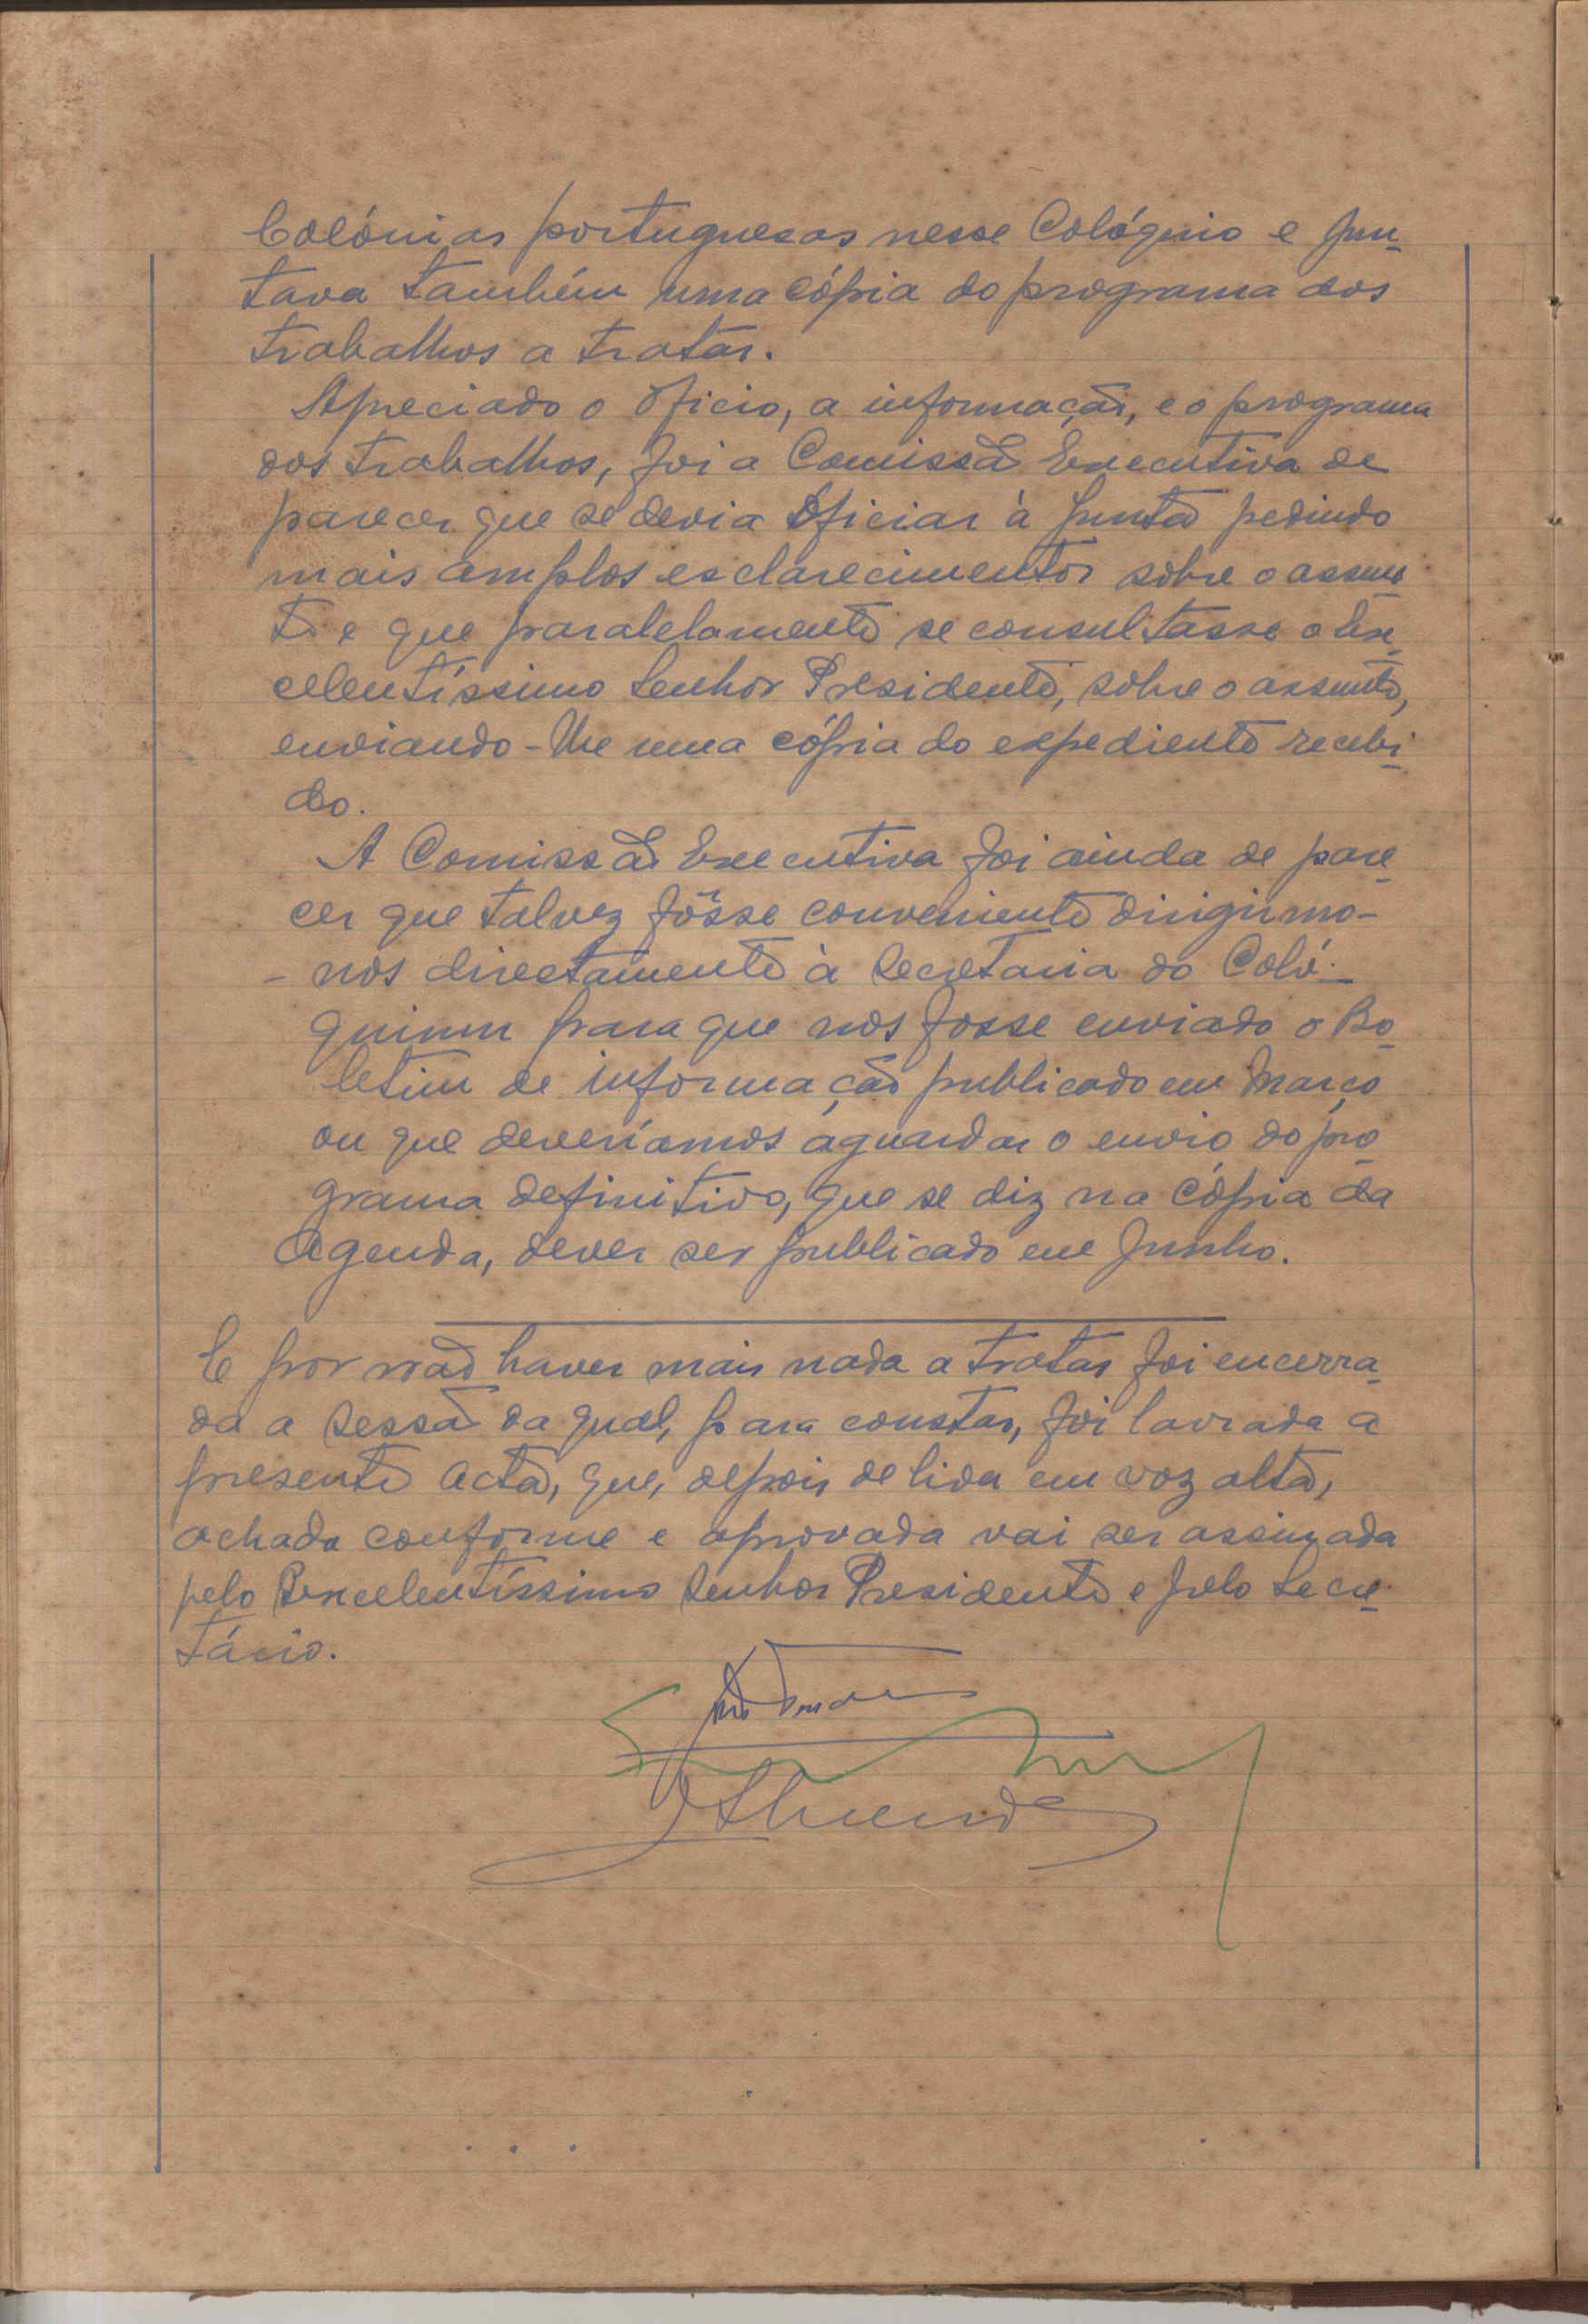 Colónias portuguesas nesse Colóquio e jun-
tava também uma cópia do programa dos
trabalhos a tratar.
Apreciado o oficio, a informação, e o programa
dos trabalhos, foi a Comissão Executiva de
parecer que se devia oficiar à Junta pedindo
mais amplos esclarecimentos sobre o assun-
to e que paralelamente se consultasse o Ex-
celentíssimo Senhor Presidente, sobre o assunto,
enviando-lhe uma cópia do expediente recebi-
do.
A Comissão Executiva foi ainda de pare-
cer que talvez fôsse conveniente dirigirmo-
-nos directamente à Secretaria do Coló-
quium para que nos fosse enviado o Bo-
letim de informação publicado em Março
ou que deveríamos aguardar o envio do pro-
grama definitivo, que se diz na cópia da
Agenda, dever ser publicado em Junho.
E por não haver mais nada a tratar foi encerra-
da a sessão da qual, para constar, foi lavrada a
presente acta, que, depois de lida em voz alta,
achada conforme e aprovada vai ser assinada
pelo Excelentíssimo Senhor Presidente e pelo Secre-
tário.